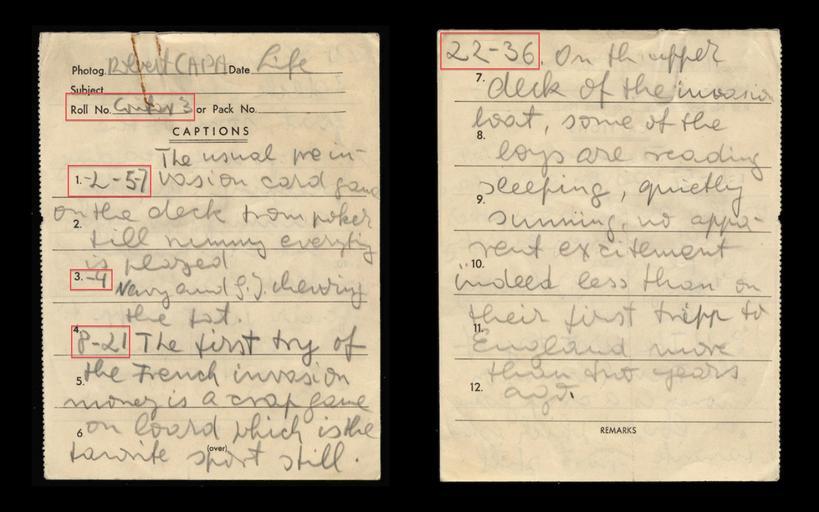 Photog. Robert CAPA Date Life
Subject
Roll No. Contax 3 or Pack No.
CAPTIONS
The usual pre in-
1. -2-57 vasion card game
on the deck from poker
2.
till rummy everything
is played
3. -4 Navy and G.J. chewing
the fat.
4. 8-21 The first try of
5. the French invasion
money is a crap game
6 on board which is the
(over)
favorite sport still.
22-36. On th upper
7. deck of the invasion
boat, some of the
8. boys are reading
sleeping, quietly
9. sunning, no appa-
rent excitement
10. indeed less than on
their first tripp to
11. England more
than two years
12. ago.
REMARKS